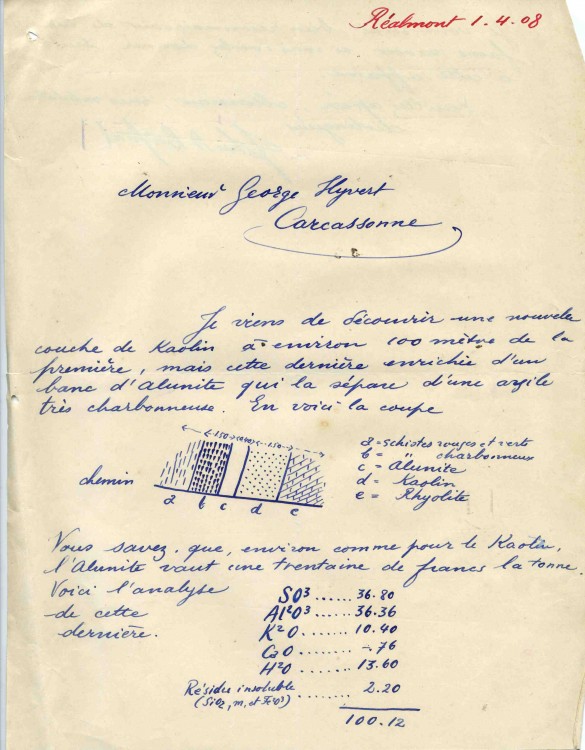 Réalmont 1.4.08
Monsieur George Hyvert
Carcassonne
Je viens de découvrir une nouvelle
couche de Kaolin à environ 100 mètre de la
première, mais cette dernière enrichie d'un
banc d'alunite qui la sépare d'une argile
très charbonneuse. En voici la coupe
1.50 0.60 1.50
chemin
a b c d e
a = schistes rouges et verts
b = " charbonneux
c = Alunite
d = Kaolin
e = Rhyolite
Vous savez que, environ comme pour le Kaolin,
l'Alunite vaut une trentaine de francs la tonne.
Voici l'analyse
de cette
dernière.
SO³ ...... 36.80
Al²O³ ..... 36.36
K²O ....... 10.40
CaO ...... -.76
H²O ...... 13.60
Résidu insoluble ........ 2.20
(SiO2, m, et Fe²O³)
100.12